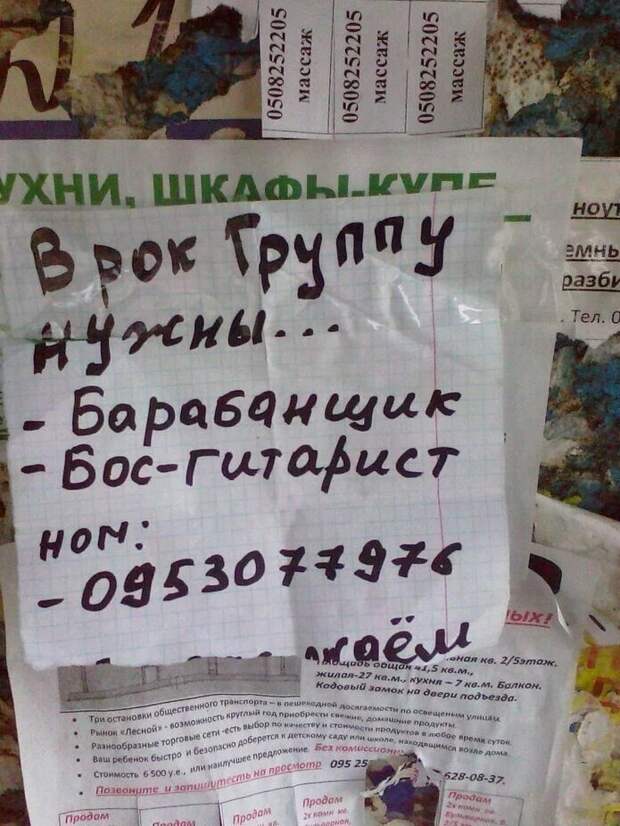 0508252205
массаж
0508252205
массаж
0508252205
массаж
УХНИ, ШКАФЫ-КУПЕ
В рок Группу
нужны...
- Барабанщик
- Бос-гитарист
ном:
- 0953077976
ноут
емнь
разби
. Тел. 0
ЫХ!
площадь общая 41,5 кв.м.,
ная кв. 2/5этаж.
жилая-27 кв.м., кухня – 7 кв.м. Балкон.
Кодовый замок на двери подъезда.
• Три остановки общественного транспорта – в пешеходной досягаемости по освещенным улицам.
• Рынок «Лесной» - возможность круглый год приобрести свежие, домашние продукты.
• Разнообразные торговые сети -есть выбор по качеству и стоимости продуктов в любое время суток.
• Ваш ребенок быстро и безопасно доберется к детскому саду или школе, находящимся возле дома.
• Стоимость 6 500 у.е., или наилучшее предложение. Без комиссион
Позвоните и запишитесь на просмотр 095 25
628-08-37.
Продам
Продам
Продам
Продам
2х комн кв.
Продам
2х комн кв.